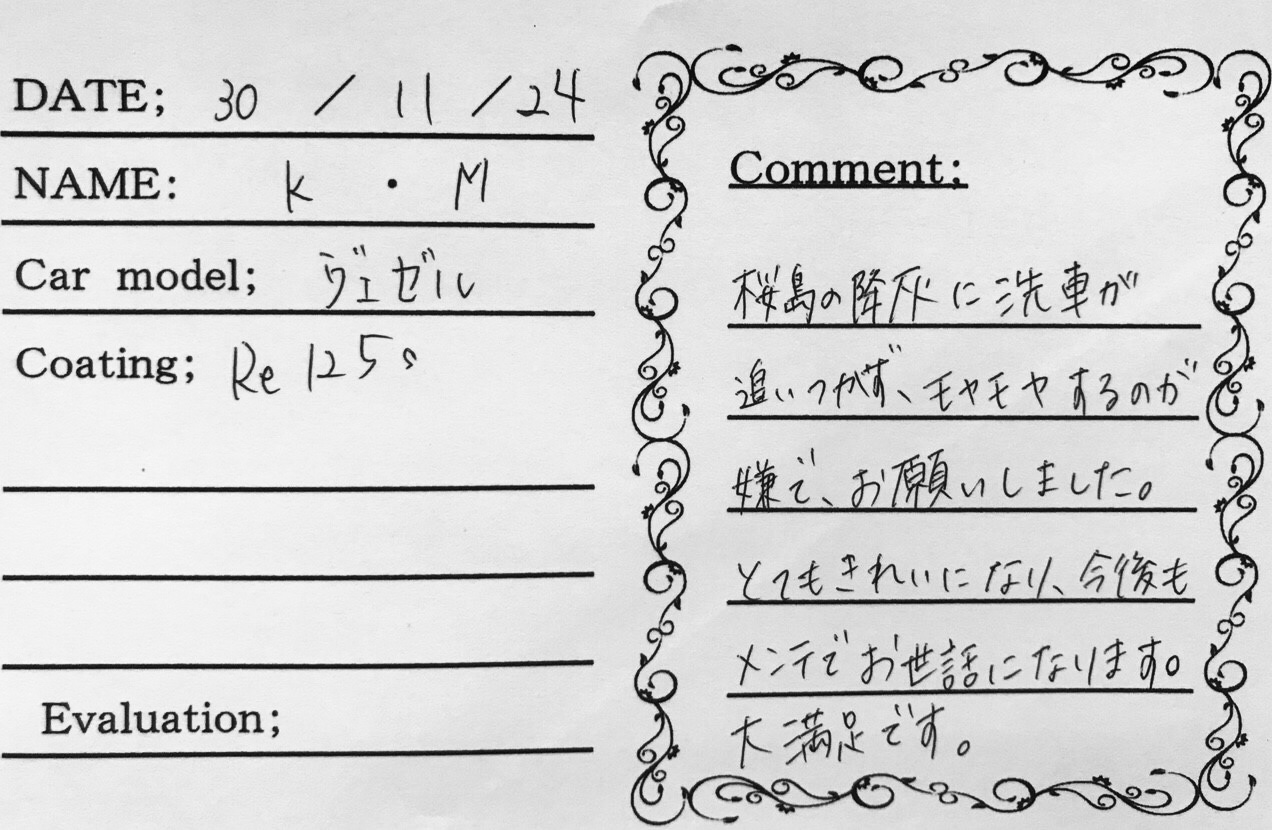 DATE; 30 / 11 / 24
NAME: K ・ M
Car model; ヴェゼル
Coating; Re 125s
Evaluation;
Comment;
桜島の降灰に洗車が
追いつかず、モヤモヤするのが
嫌で、お願いしました。
とてもきれいになり、今後も
メンテでお世話になります。
大満足です。